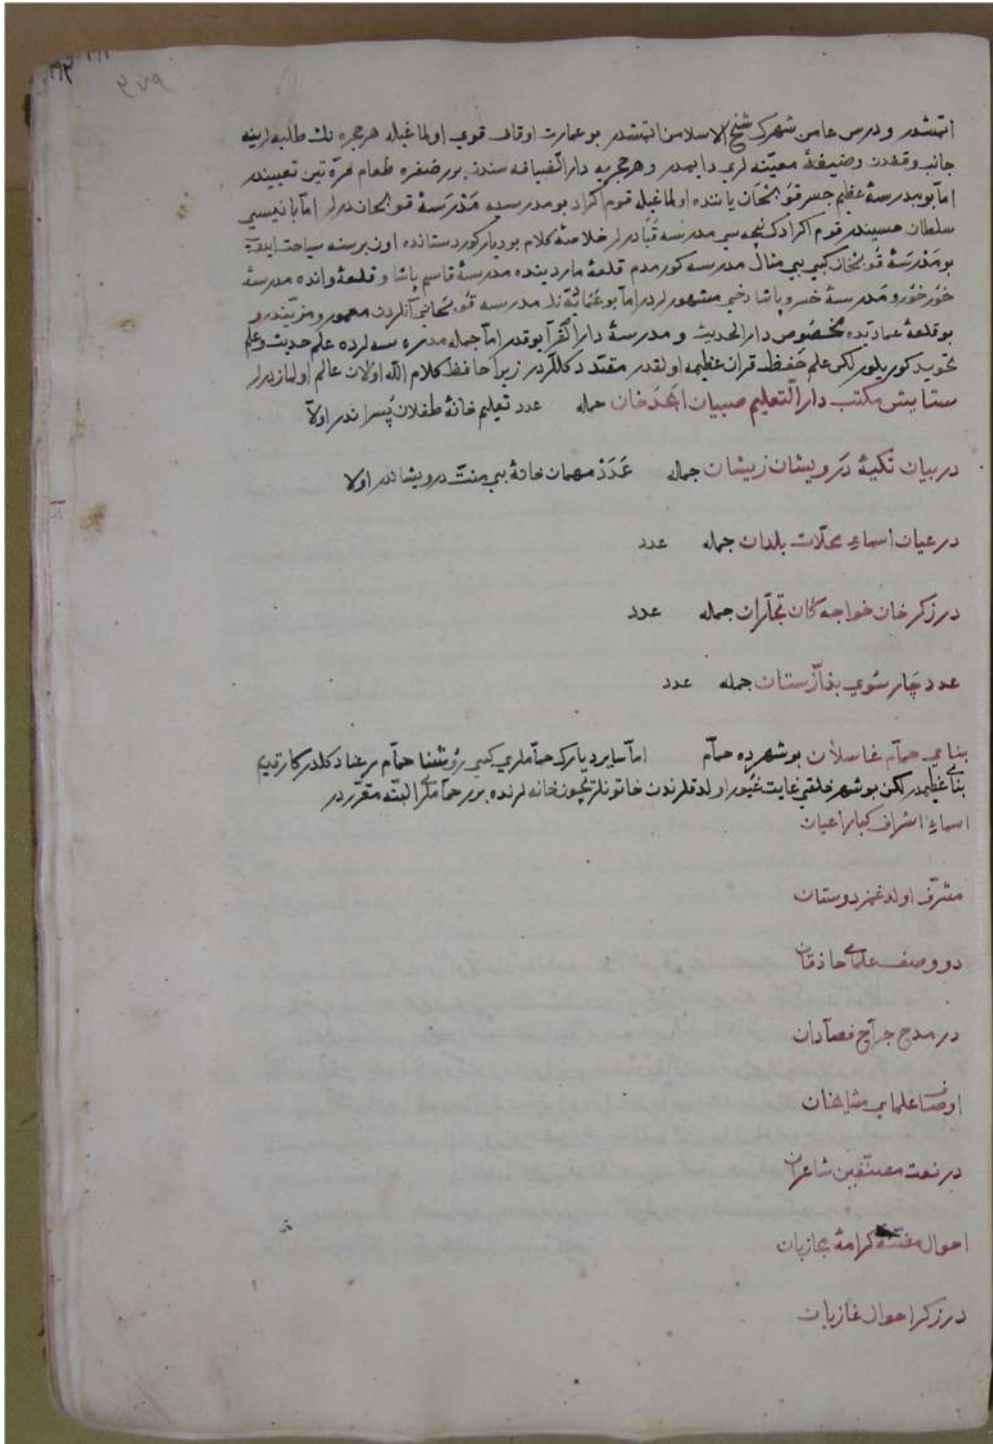 اتمشدر و درس عامن شهرك شيخ الاسلامن اتمشدر بو عمارت اوقاف قوي اولمغيله هر حجره نك طلبه لرينه
جانب وقفدن وضيفۀ معينه لري دايمدر و هر حجريه دار الضيافه سندن برر صفره طعام مرّة تين تعييندر
امّا بو مدرسۀ عظيم جسر قوبخان ياننده اولمغيله قوم اكراد بو مدرسيه مَدْرَسَۀ قوبخان ديرلر امّا بانيسي
سلطان حسيندر قوم اكرادك نيجه سي مدرسه قُبَاد ديرلر خلاصۀ كلام بو ديار كوردستانده اون بر سنه سياحت ايدوب
بو مَدْرَسَۀ قُوبخان كبي بي مثال مدرسه كورمدم قلعۀ ماردينده مدرسۀ قاسم پاشا و قلعۀ وانده مدرسۀ
خورخور و مَدرسۀ خسرو پاشا دخي مشهورلردر امّا بو عماديّه نك مدرسه قوبخاني آنلردن معمور و مزيّندر و
بو قلعۀ عماديّه ده مخصُوص دار الحديث و مدرسۀ دار القرّا يوقدر امّا جمله مدره سه لرده علم حديث و علم
تجويد كوريلور لكن علم حفظ قران عظيمه اولقدر مقيّد دكللردر زيرا حافظ كلام الله اولان عالم اولماز ديرلر
ستايش مكتب دار التعليم صبيان ابجد خان جمله عدد تعليم خانۀ طفلان پُسراندر اولا
در بيان تكيۀ دَرويشان زيشان جمله عَدَدْ مهمان خانۀ بي منت درويشاندر اولا
در عيان اسماء محلّات بلدان جمله عدد
در زكر خان خواجه كان تجّاران جمله عدد
عدد چار سُوي بذازستان جمله عدد
بناي حمّام غاسلان بو شهرده حمّام امّا ساير ديارك حمّاملري كبي رُوشنا حمّام رعنا دكلدر كار قديم
بناي عظيمدر لكن بو شهر خلقي غايت غيُور اولدقلرندن خاتونلر ايچون خانه لرنده برر حمّاملري البتّه مقرّردر
اسماء اشراف كبار اعيان
مشرّف اولدغمز دوستان
در وصف علماي حاذقان
در مدح جرّاح فصّادان
اوصاف علماي مشايخان
در نعت مصنّفين شاعران
احوال كرامۀ مجازيان
در زكر احوال غازيان